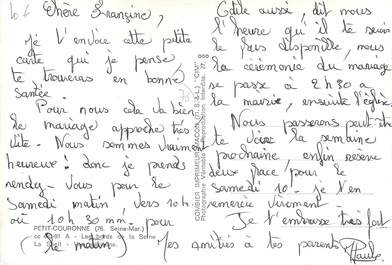 Chère Franzine,
Je t'envoie cette petite
carte qui je pense
te trouveras en bonne
santée.
Pour nous cela va bien
le mariage approche très
vite. Nous sommes vraiment
heureux! donc je prends
rendez-vous pour le
Samedi matin, vers 10h
où 10h30 mn. pour
(le matin)
Cathe aussi, dit nous
l'heure qu'il te serais
le plus disponible, nous
la cérémonie du mariage
se passe à 2h30 à
la mairie, ensuite l'église
Nous passerons peut-être
te voir la semaine
prochaine, enfin réserve
deux place, pour le
samedi 10. je t'en
remercie vivement.
Je t'embrasse très fort
Mes amitiés à tes parents
PETIT-COURONNE (76. Seine-Mar.)
COMBIER IMPRIMEUR MACON (S.-&-L.) "CIM"